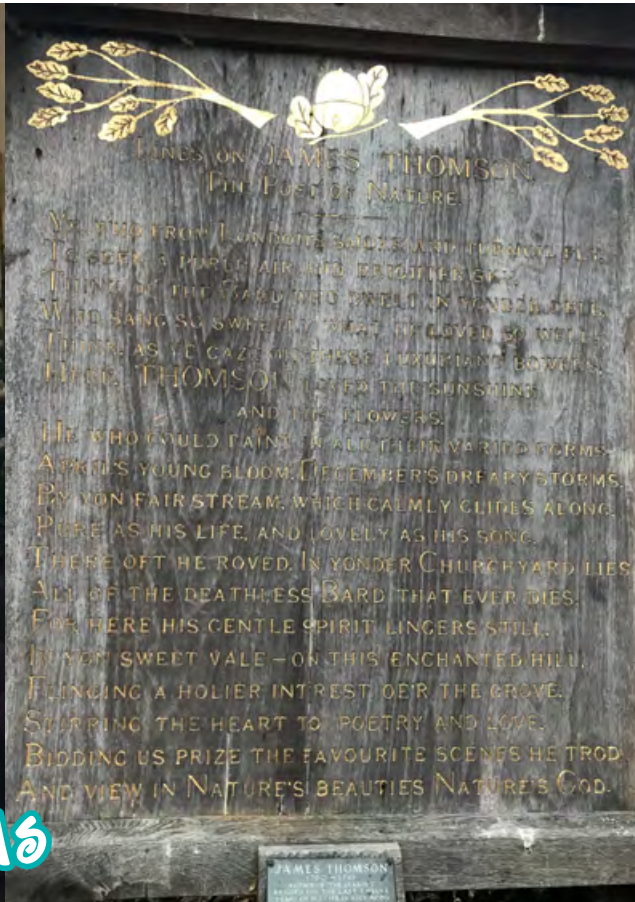 LINES ON JAMES THOMSON
THE POET OF NATURE.
YE, WHO FROM LONDON'S SMOKE AND TURMOIL FLY,
TO SEEK A PURER AIR AND BRIGHTER SKY,
THINK OF THE BARD WHO DWELT IN YONDER DELL,
WHO SANG SO SWEETLY WHAT HE LOVED SO WELL.
THINK, AS YE GAZE ON THESE LUXURIANT BOWERS,
HERE, THOMSON LOVED THE SUNSHINE
AND THE FLOWERS.
HE WHO COULD PAINT IN ALL THEIR VARIED FORMS
APRIL'S YOUNG BLOOM, DECEMBER'S DREARY STORMS.
BY YON FAIR STREAM, WHICH CALMLY GLIDES ALONG,
PURE AS HIS LIFE, AND LOVELY AS HIS SONG,
THERE OFT HE ROVED. IN YONDER CHURCHYARD LIES
ALL OF THE DEATHLESS BARD THAT EVER DIES.
FOR HERE HIS GENTLE SPIRIT LINGERS STILL,
IN YON SWEET VALE – ON THIS ENCHANTED HILL,
FLINGING A HOLIER INT'REST O'ER THE GROVE,
STIRRING THE HEART TO POETRY AND LOVE.
BIDDING US PRIZE THE FAVOURITE SCENES HE TROD
AND VIEW IN NATURE'S BEAUTIES NATURE'S GOD.
JAMES THOMSON